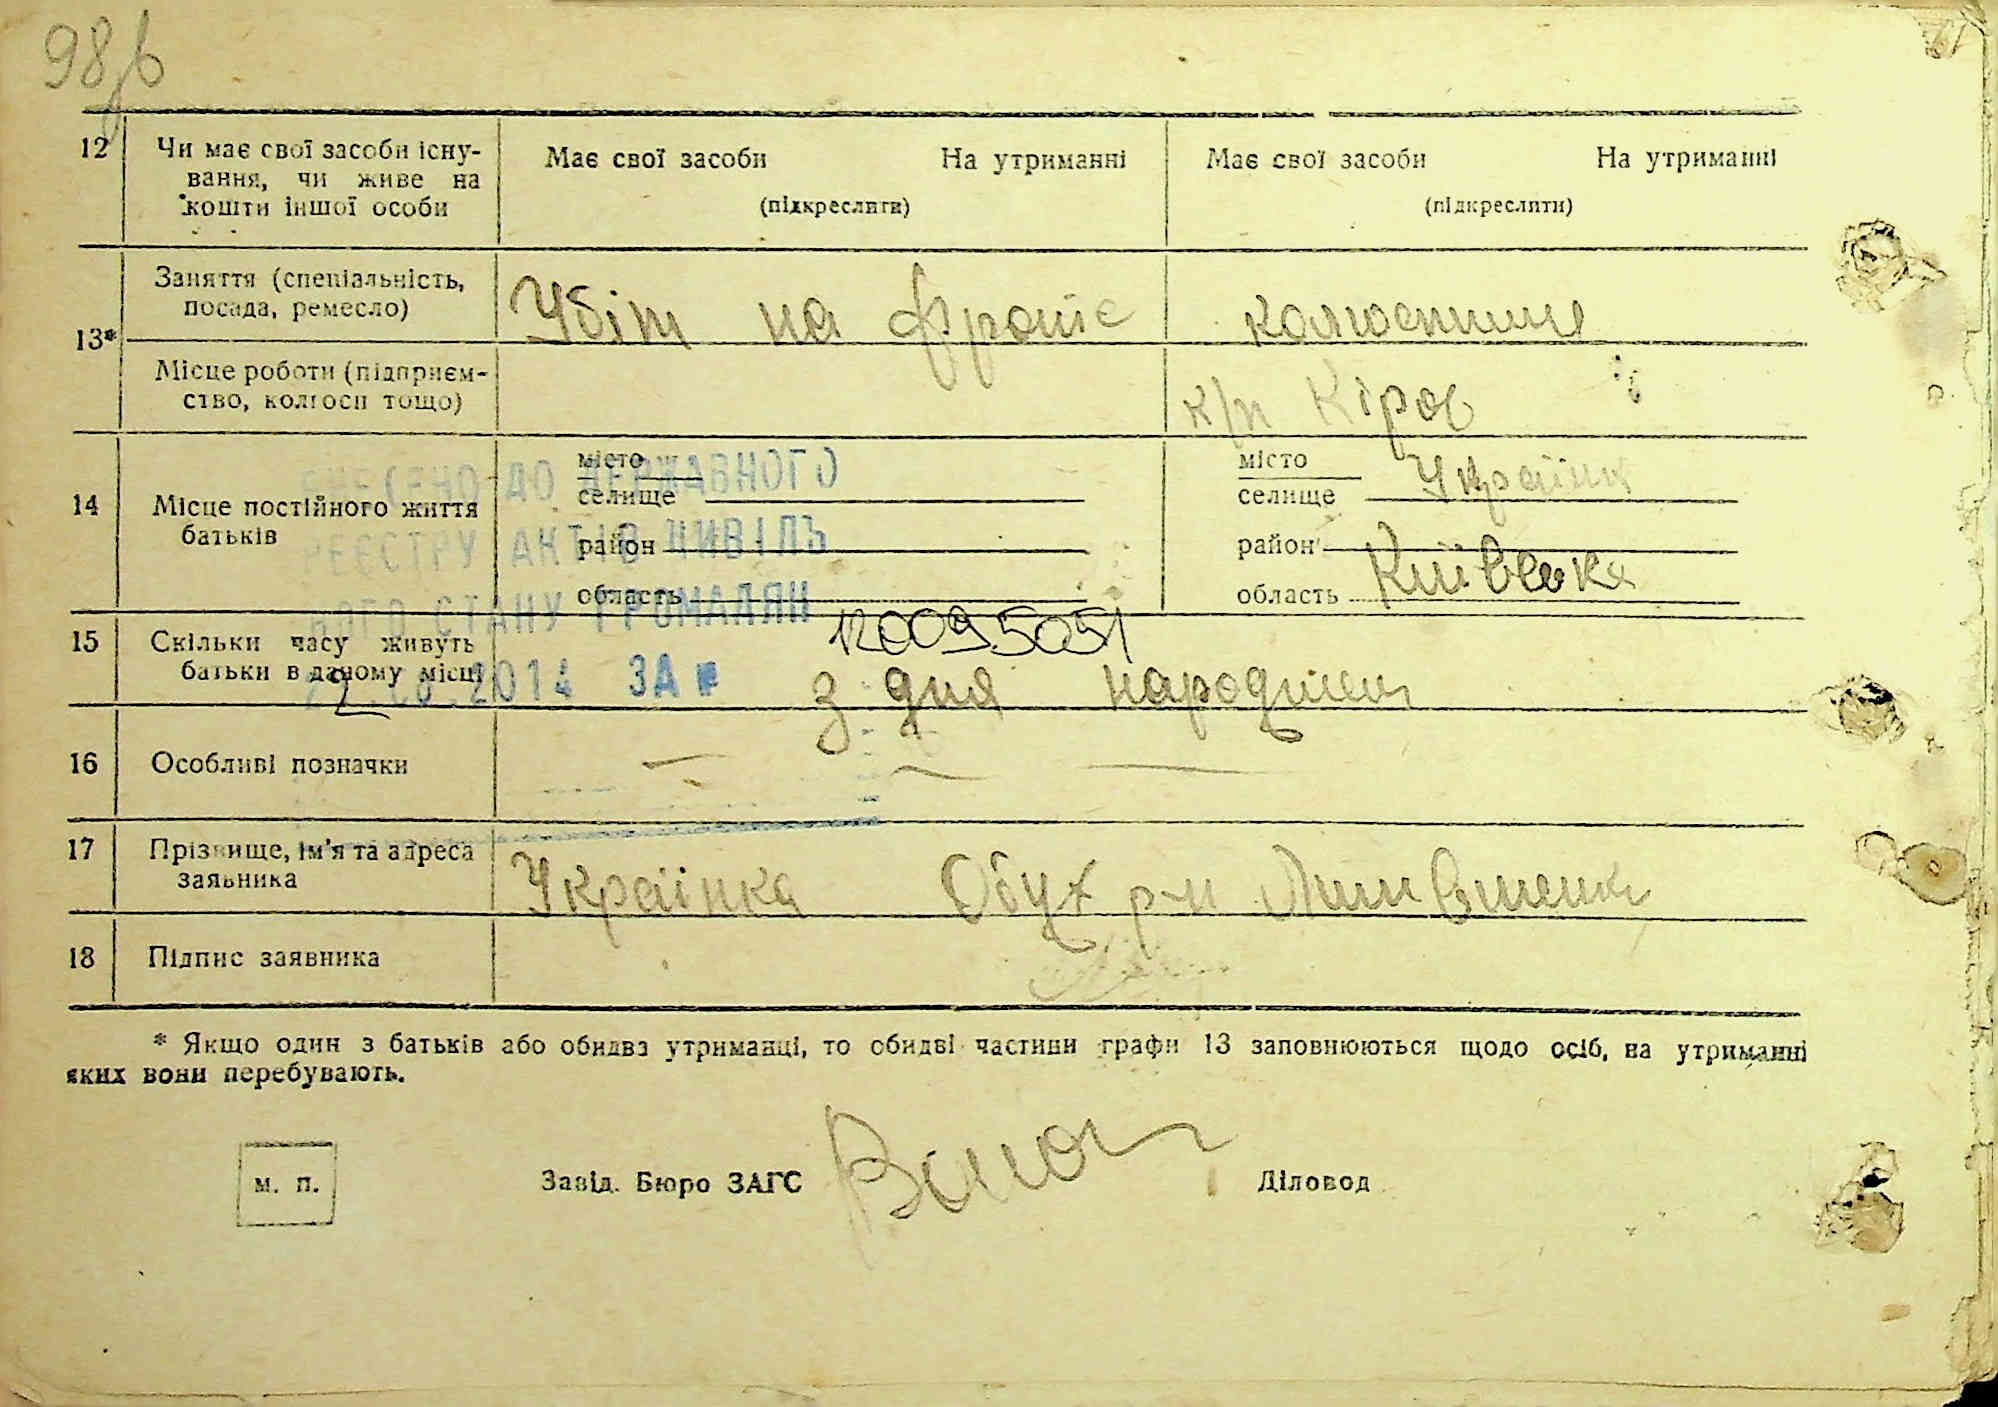 98
12 Чи має свої засоби існу- Має свої засоби На утриманні Має свої засоби На утриманні
вання, чи живе на
кошти іншої особи (підкреслити) (підкреслити)
13* Заняття (спеціальність, Убіт на фронте колгоспниця
посада, ремесло)
Місце роботи (підприєм- к/п Кіров
ство, колгосп тощо)
14 Місце постійного життя
батьків
місто
селище
район
область
місто
селище Українка
район
область Київська
ВНЕСЕНО ДО ДЕРЖАВНОГО
РЕЄСТРУ АКТІВ ЦИВІЛЬ
НОГО СТАНУ ГРОМАДЯН
2014 ЗА №
120095051
15 Скільки часу живуть з дня народжен
батьки в даному місці
16 Особливі позначки — — —
17 Прізвище, ім'я та адреса Українка Обух р-н
заявника
18 Підпис заявника
* Якщо один з батьків або обидва утриманці, то обидві частини графи 13 заповнюються щодо осіб, на утриманні
яких вони перебувають.
м. п. Завід. Бюро ЗАГС Діловод